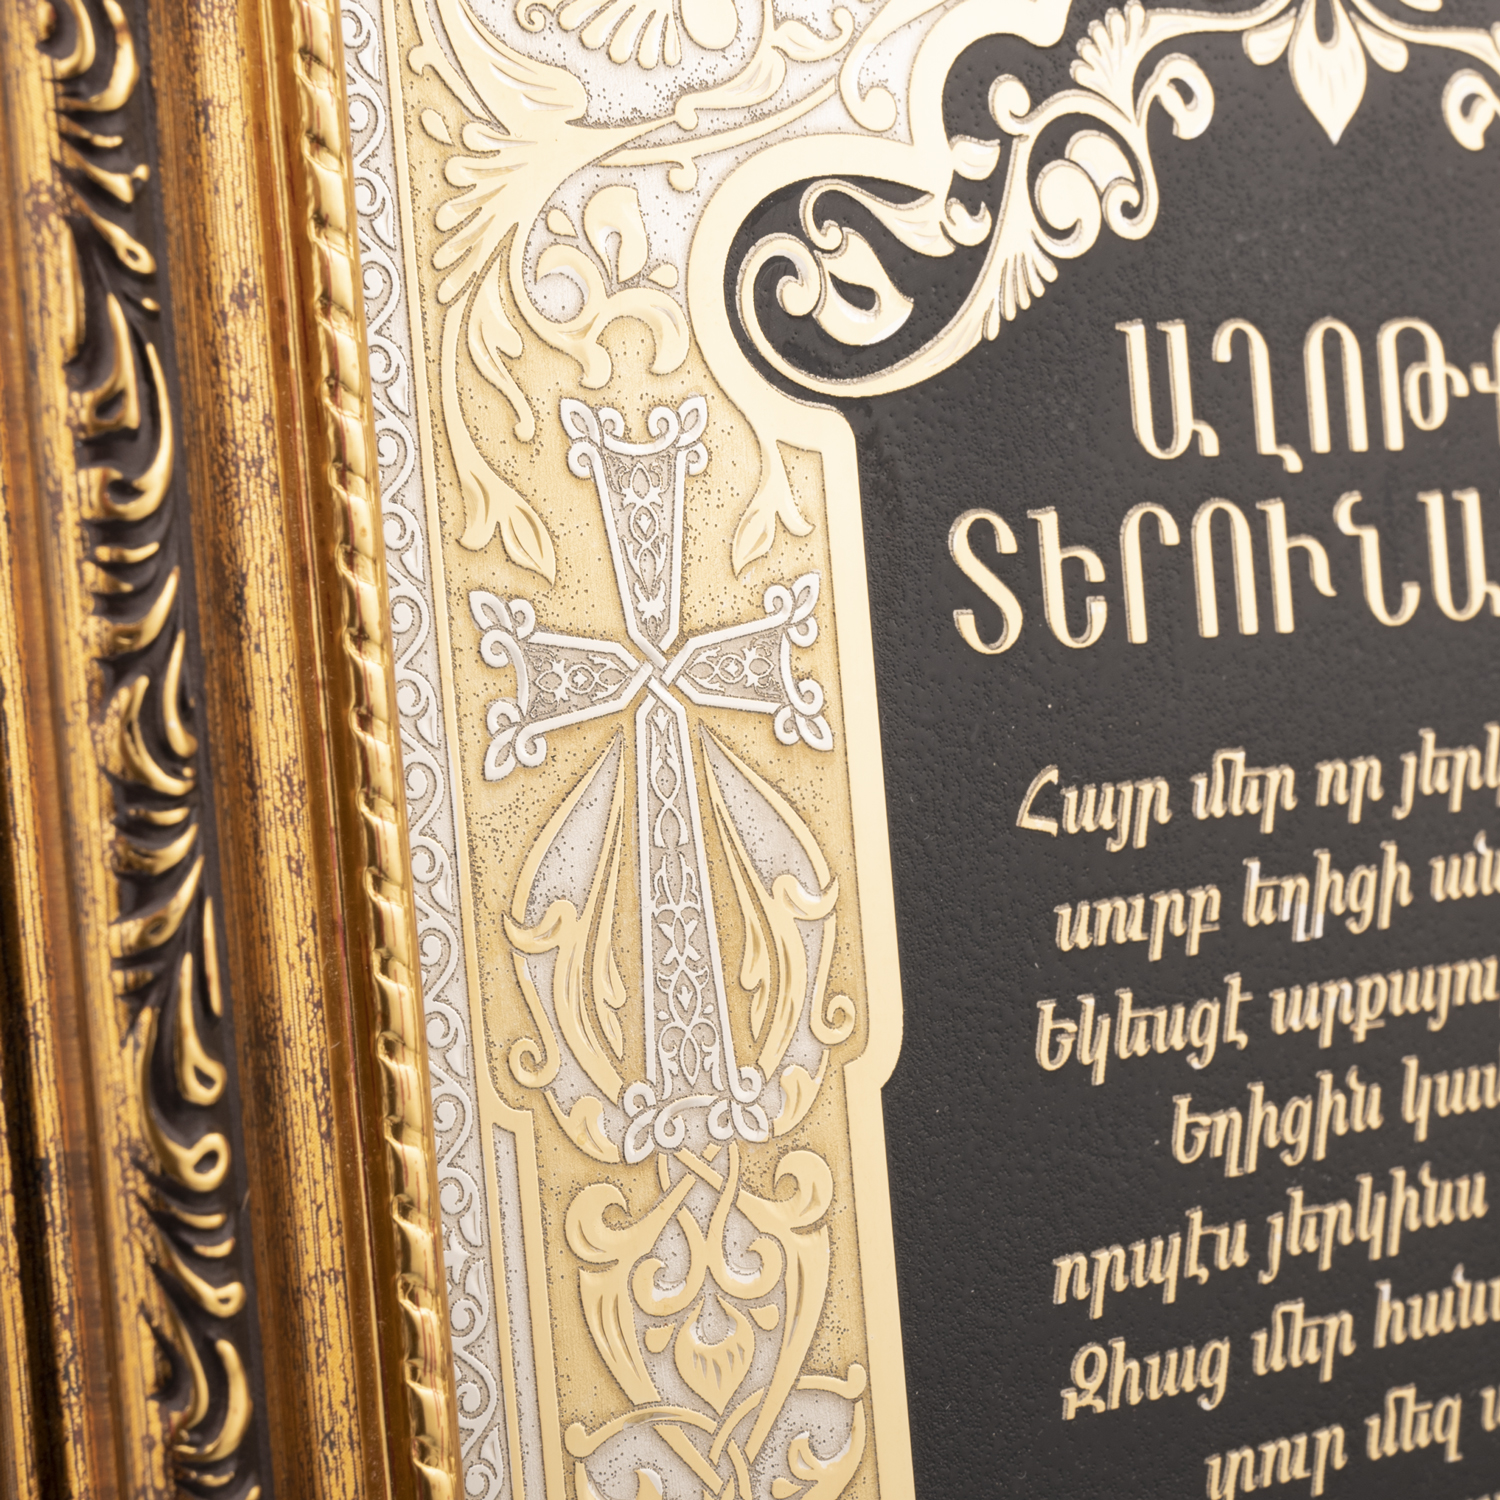 ԱՂՈԹ
ՏԵՐՈՒՆԱ
Հայր մեր որ յերկ
սուրբ եղիցի ան
Եկեսցէ արքայու
Եղիցին կամ
որպէս յերկինս
Զհաց մեր հան
տուր մեզ